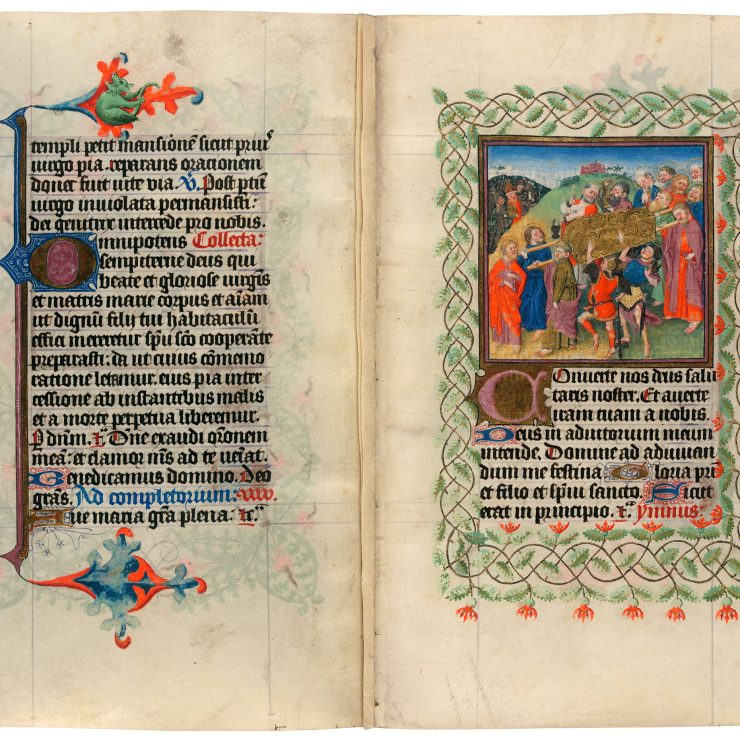 templi petit mansionē sicut priu᷒
uirgo pia reparans orationem
donec fuit uite via. V̄. Post ptū
uirgo inuiolata permansisti:
dei genitrix intercede pro nobis.
Omnipotens Collecta:
sempiterne deus qui
beate et gloriose uirgīs
et matris marie corpus et aīam
ut dignū filij tui habitaculū
effici mereretur spū sco cooperāte
preparasti: da ut cuius cōmemo
ratione letamur. eius pia inter
cessione ab instantibus malis
et a morte perpetua liberemur.
P dnūm. R. Dne exaudi orōnem
meā: et clamor ms ad te ueīat.
Benedicamus domino. Deo
grās. Ad completorium:
Aue maria grā plena: rc̄.
Conuerte nos deus salu
taris noster. Et auerte
iram tuam a nobis.
Deus in adiutorium meum
intende. Domine ad adiuuan
dum me festina Gloria pri
et filio et spūi sancto. Sicut
erat in principio. r̄. Ymnus: